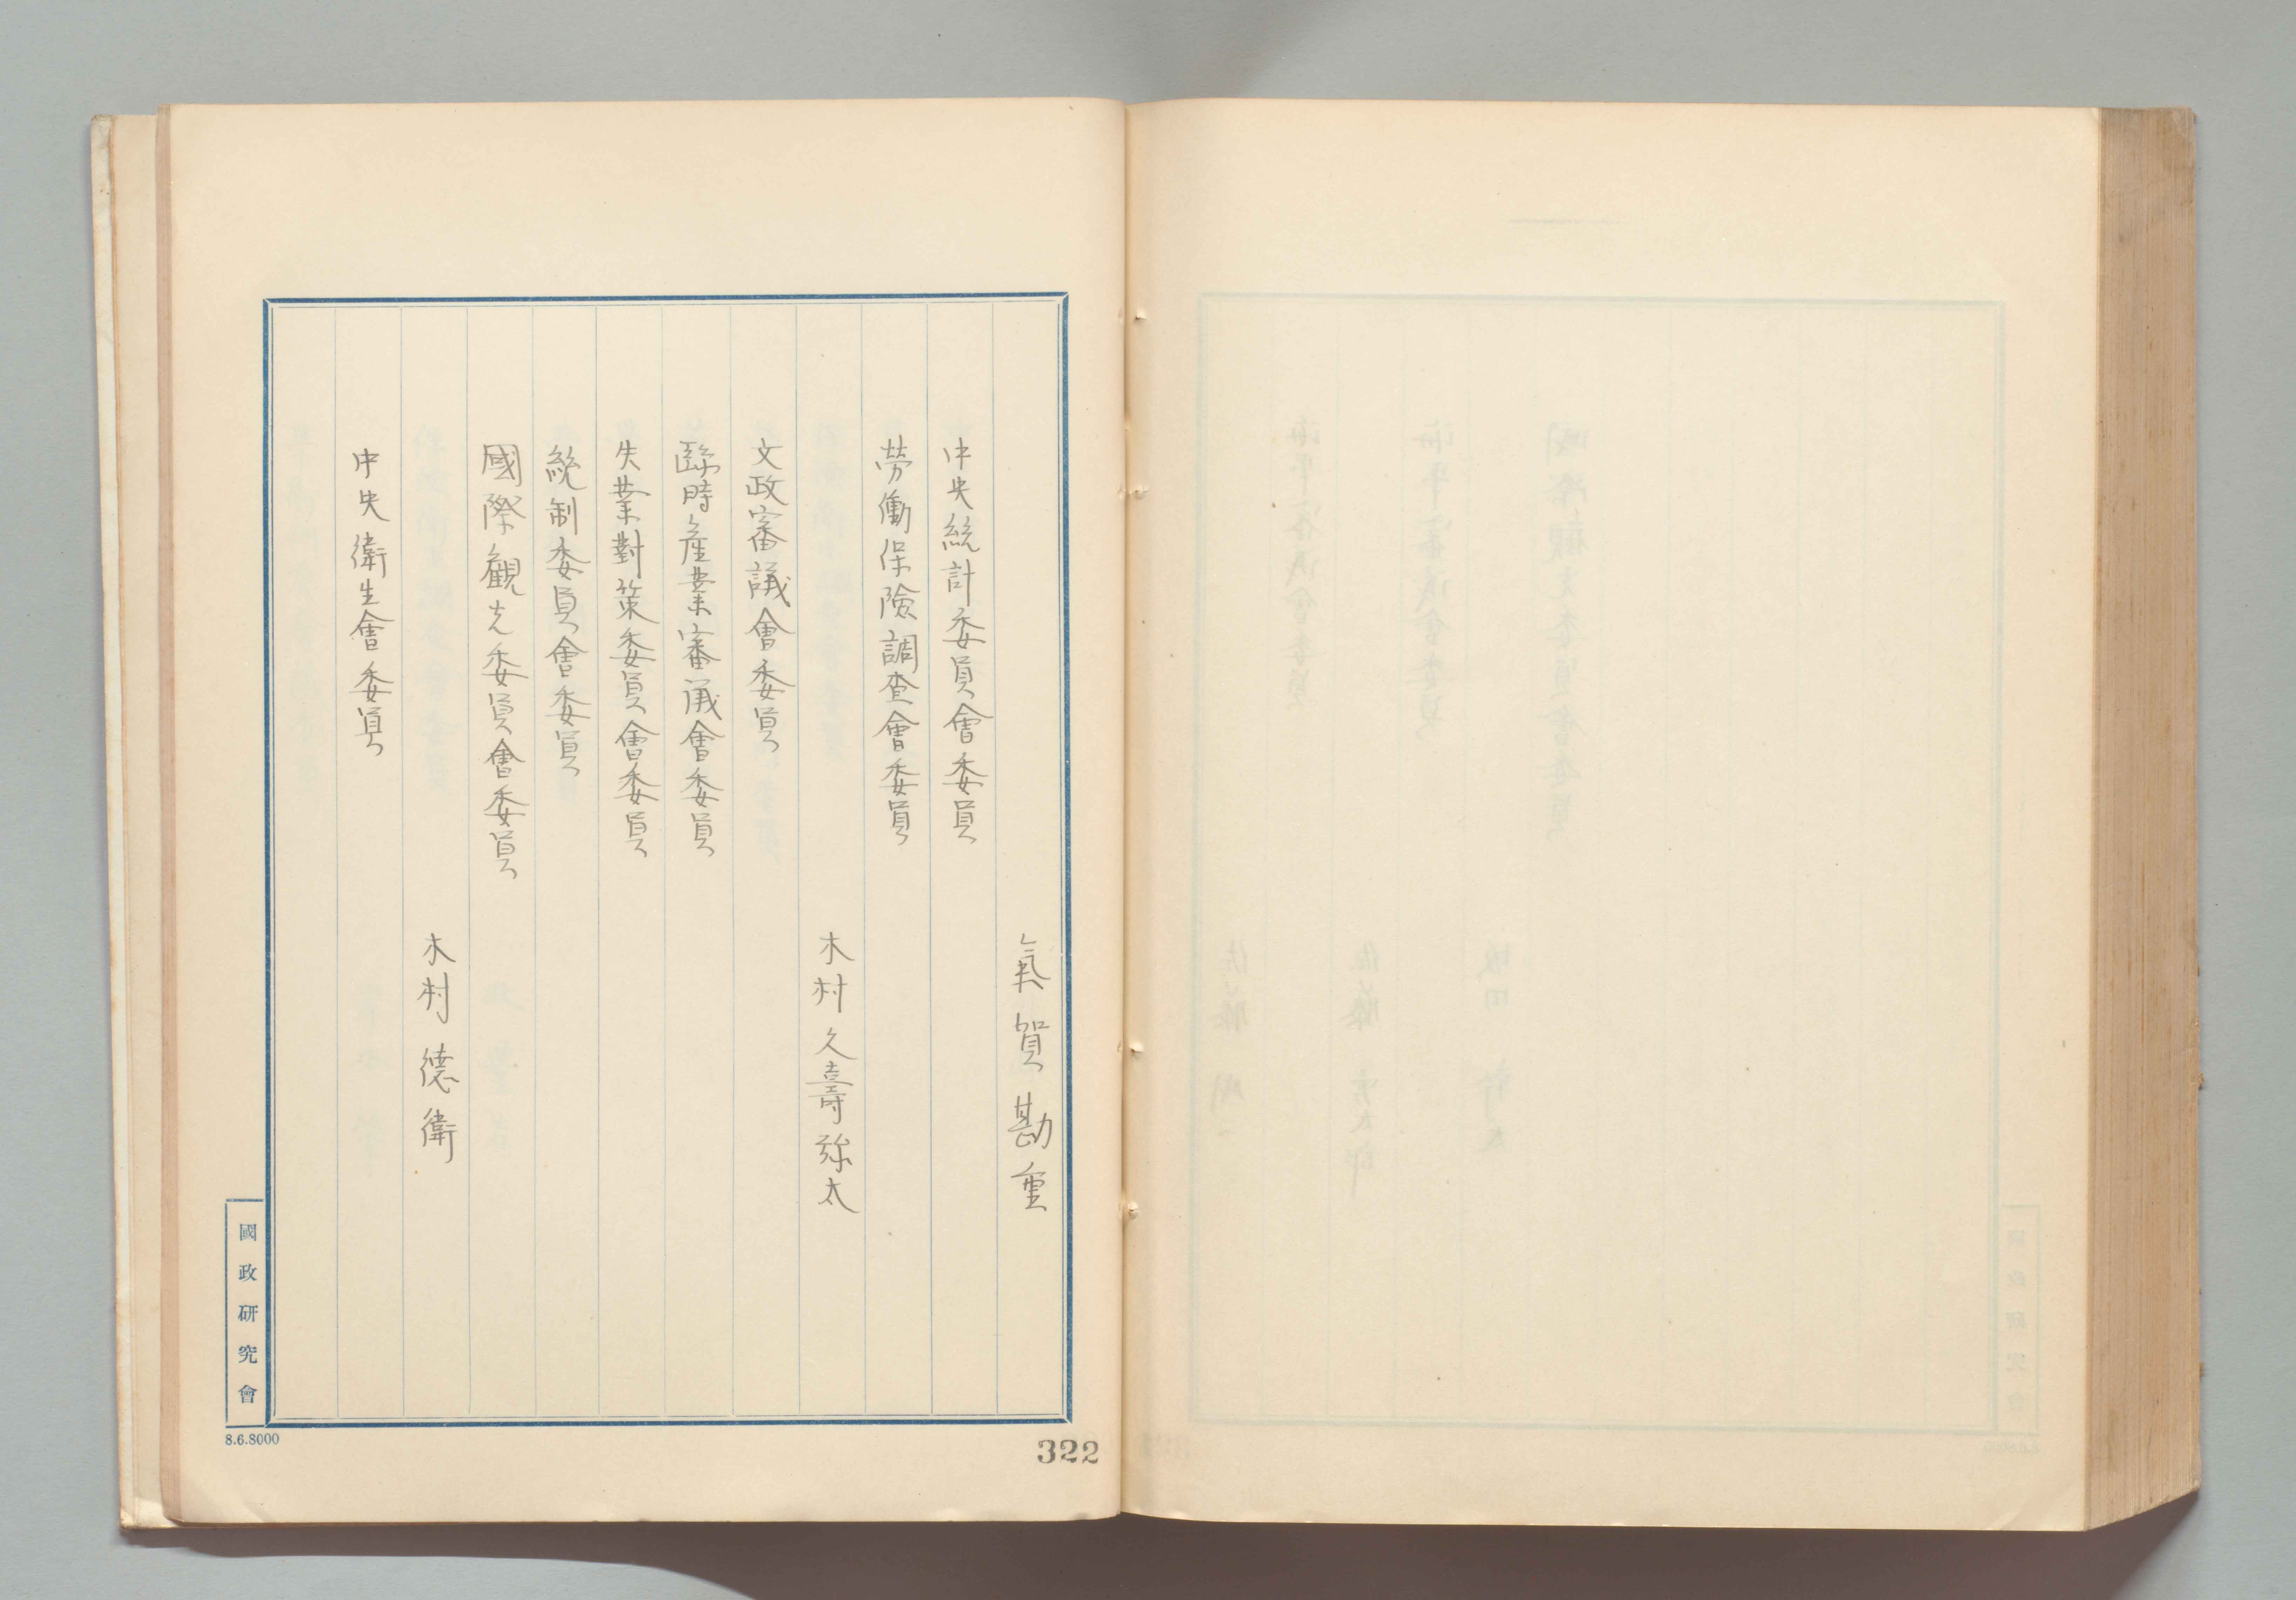 氣賀勘重
中央統計委員會委員
勞働保險調査會委員
木村久壽弥太
文政審議會委員
臨時産業審議會委員
失業對策委員會委員
統制委員會委員
國際観光委員會委員
木村德衛
中央衛生會委員
國政研究會
8.6.8000
322